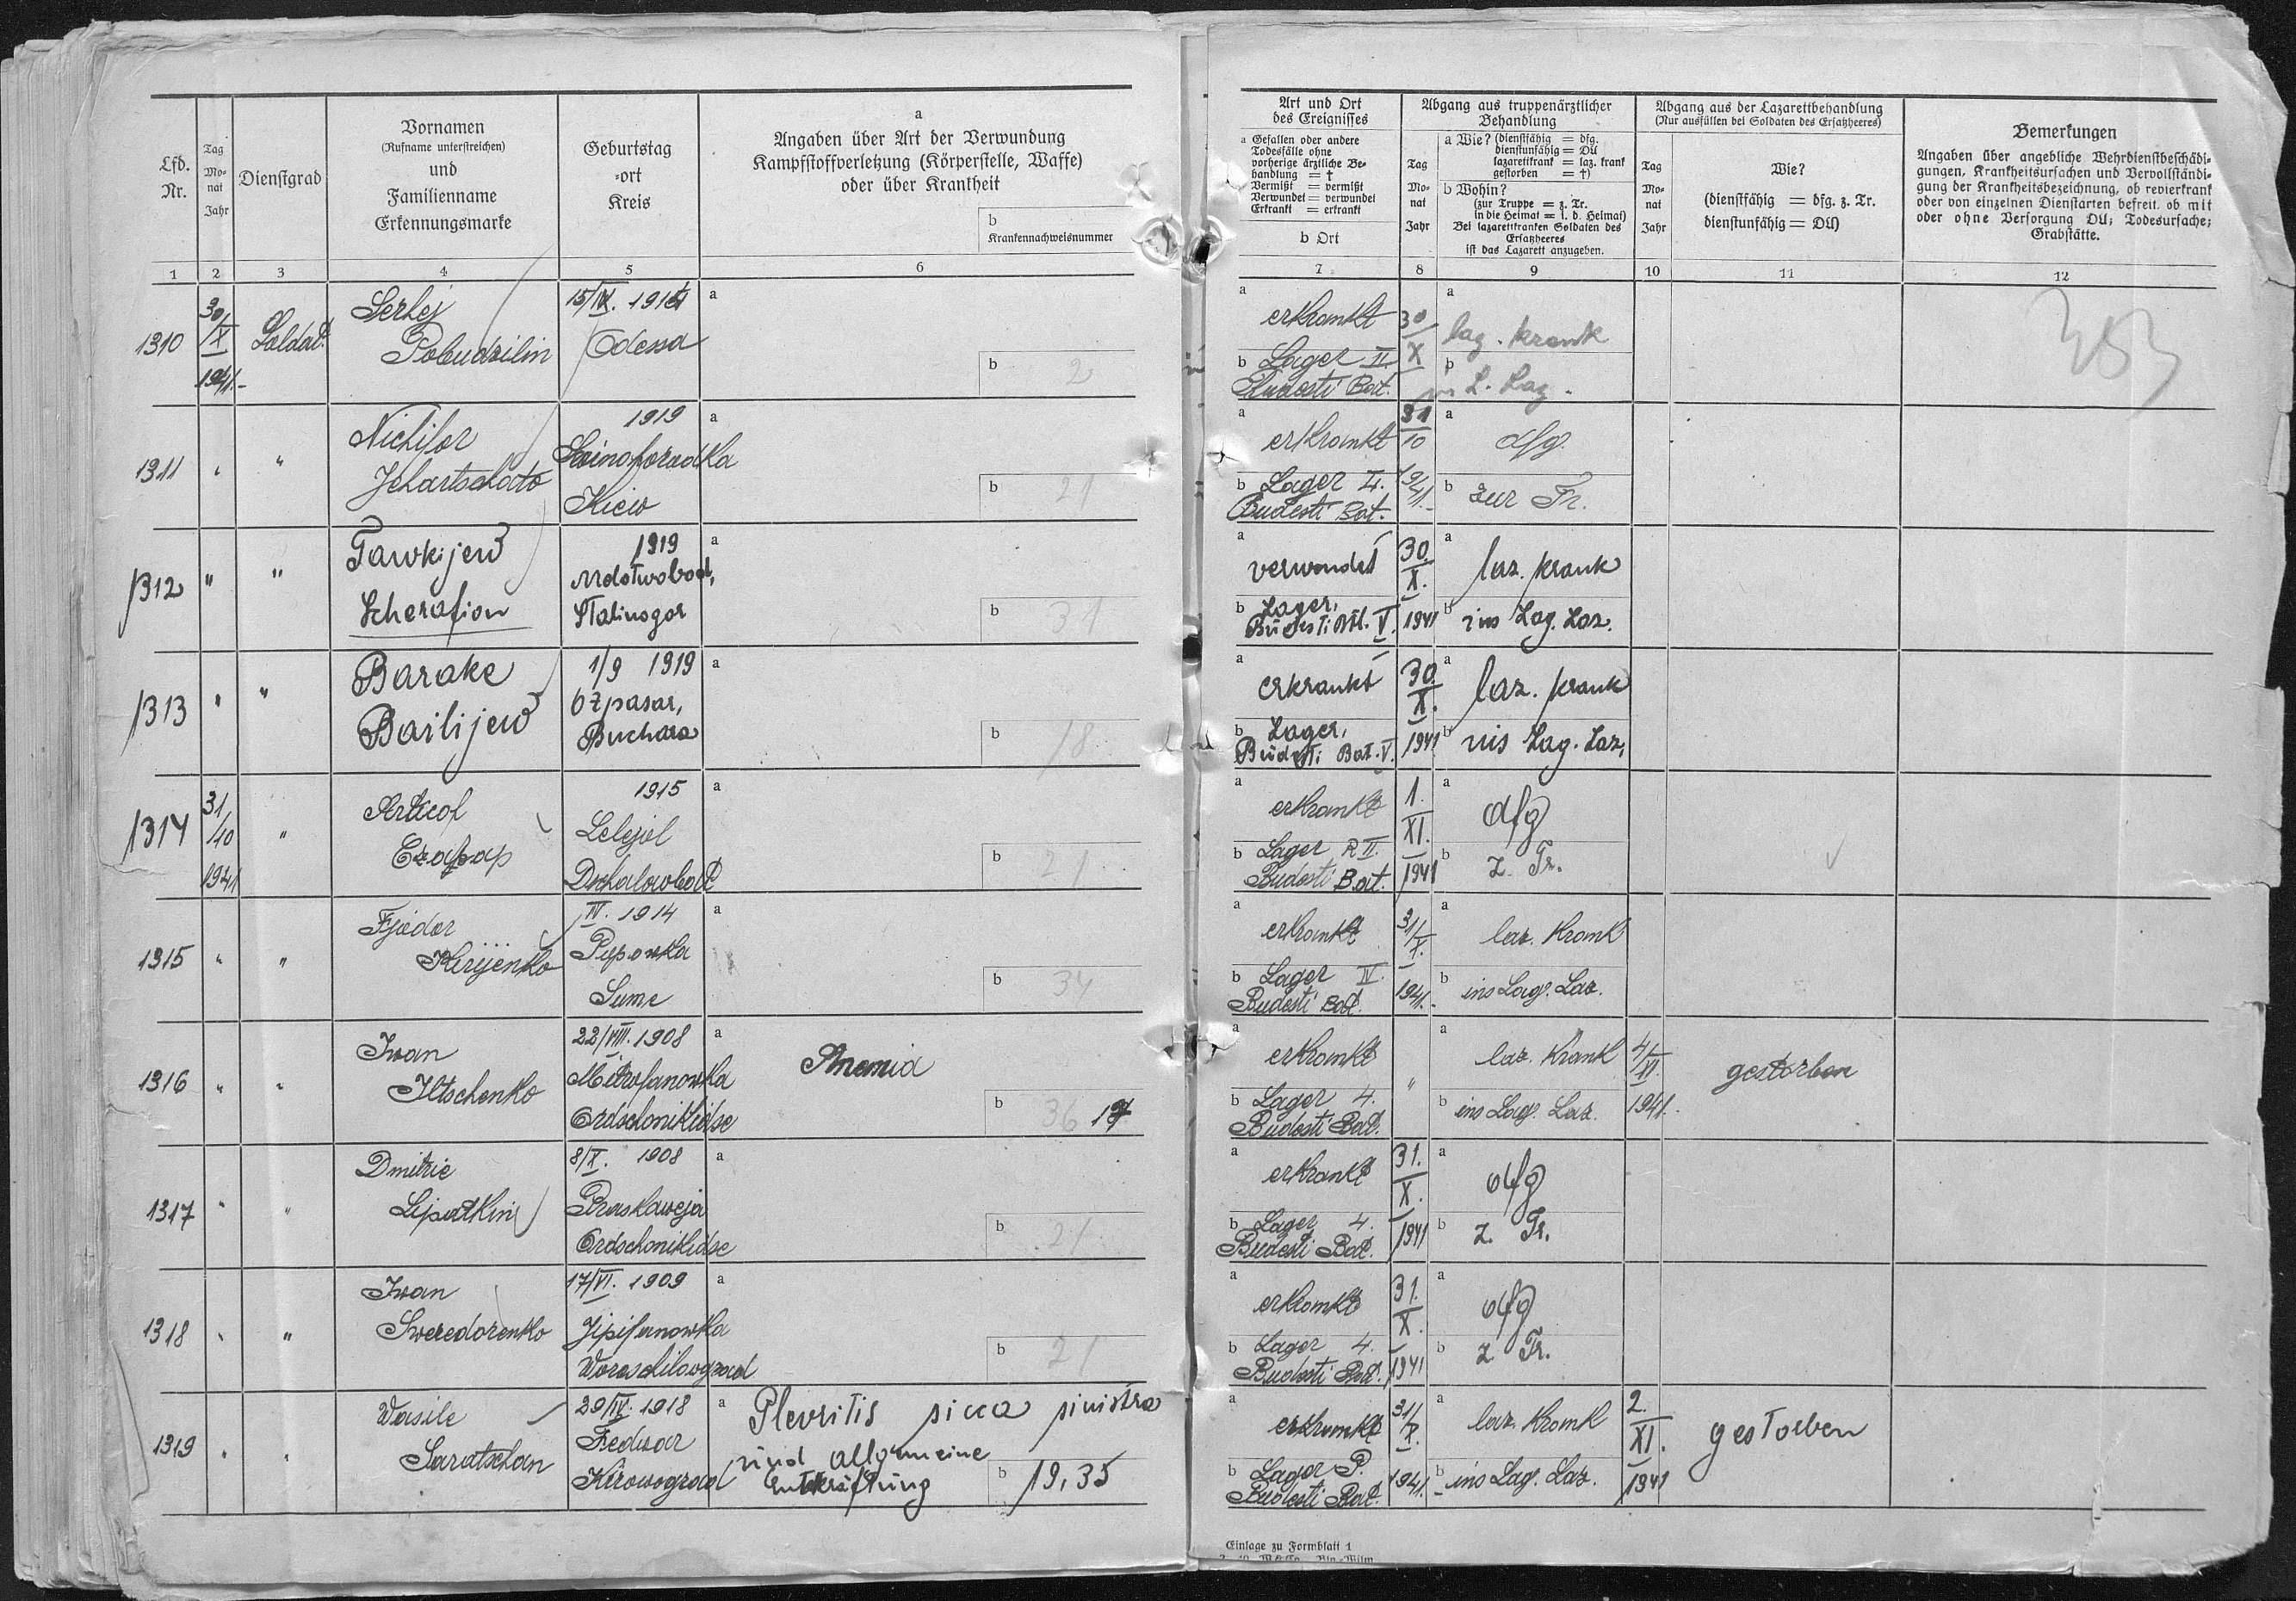 Lfd. Nr.
Tag Monat Jahr
Dienstgrad
Vornamen
(Rufname unterstreichen)
und
Familienname
Erkennungsmarke
Geburtstag
-ort
Kreis
a
Angaben über Art der Verwundung
Kampfstoffverletzung (Körperstelle, Waffe)
oder über Krankheit
b
Krankennachweisnummer
1 2 3 4 5 6
1310 30/X 1941.- Soldat
Serhej
Pobudzilin
Odessa
a
b 2
1311 " "
Nichifor
1919
Kiew
a
b 21
1312 " "
Tawkijew
Scherafion
1919
Stalinogor
a
b 31
1313 " "
Barake
Bailijew
1/9 1919
Ozpasar,
Buchara
a
b 18
1314 31/10 1941 "
1915
Lelejol
a
b 21
1315 " "
Fjedor
Kirijenko
IV. 1914
Pupowka
Sume
a
b 34
1316 " "
Iwan
Iltschenko
22/VIII. 1908
Mitrofanowka
Ordschonikidse
a Anemia
b 36
1317 " "
Dmitrie
Lipatkin
8/X. 1908
Praskaweja
Ordschonikidse
a
b 21
1318 " "
Iwan
Sweredorenko
17/VI. 1909
Jipifanowka
Woroschilowgrad
a
b 21
1319 " "
Wasile
Saratschan
29/IV. 1918
Fedwar
Kirowograd
a Plevritis sicca sinistra
und allgemeine
Entkräftung
b 19,35
Art und Ort
des Ereignisses
a Gefallen oder andere
Todesfälle ohne
vorherige ärztliche Be-
handlung = †
Vermißt = vermißt
Verwundet = verwundet
Erkrankt = erkrankt
b Ort
Abgang aus truppenärztlicher
Behandlung
Tag Monat Jahr
a Wie? (dienstfähig = dfg.
dienstunfähig = DU
lazarettkrank = laz. krank
gestorben = †)
b Wohin?
(zur Truppe = z. Tr.
in die Heimat = i. d. Heimat)
Bei lazarettkranken Soldaten des
Ersatzheeres
ist das Lazarett anzugeben.
Abgang aus der Lazarettbehandlung
(Nur ausfüllen bei Soldaten des Ersatzheeres)
Tag Monat Jahr
Wie?
(dienstfähig = dfg. z. Tr.
dienstunfähig = DU)
Bemerkungen
Angaben über angebliche Wehrdienstbeschädi-
gungen, Krankheitsursachen und Vervollständi-
gung der Krankheitsbezeichnung, ob revierkrank
oder von einzelnen Dienstarten befreit, ob mit
oder ohne Versorgung DU; Todesursache;
Grabstätte.
7 8 9 10 11 12
a erkrankt 30/X a laz. krank
b Lager II.
Budesti Bat. b ins L. Laz.
353
a erkrankt 31/10 1941.- a dfg.
b Lager 4.
Budesti Bat. b zur Tr.
a verwundet 30./X. 1941 a laz. krank
b Lager,
Budesti Btl. V. b ins Lag. Laz.
a erkrankt 30./X. 1941 a laz. krank
b Lager,
Budesti Bat. V. b ins Lag. Laz.
a erkrankt 1./XI. 1941 a dfg
b Lager R II.
Budesti Bat. b z. Tr.
a erkrankt 31/X. 1941.- a laz. Krank
b Lager IV.
Budesti Bat. b ins Lag. Laz.
a erkrankt " a laz. Krank 4/XI. 1941. gestorben
b Lager 4.
Budesti Bat. b ins Lag. Laz.
a erkrankt 31./X. 1941 a dfg
b Lager 4.
Budesti Bat. b z. Tr.
a erkrankt 31./X. 1941 a dfg
b Lager 4.
Budesti Bat. b z Tr.
a erkrankt 31/X. 1941.- a laz. Krank 2./XI. 1941 gestorben
b Lager P.
Budesti Bat. b ins Lag. Laz.
Einlage zu Formblatt 1